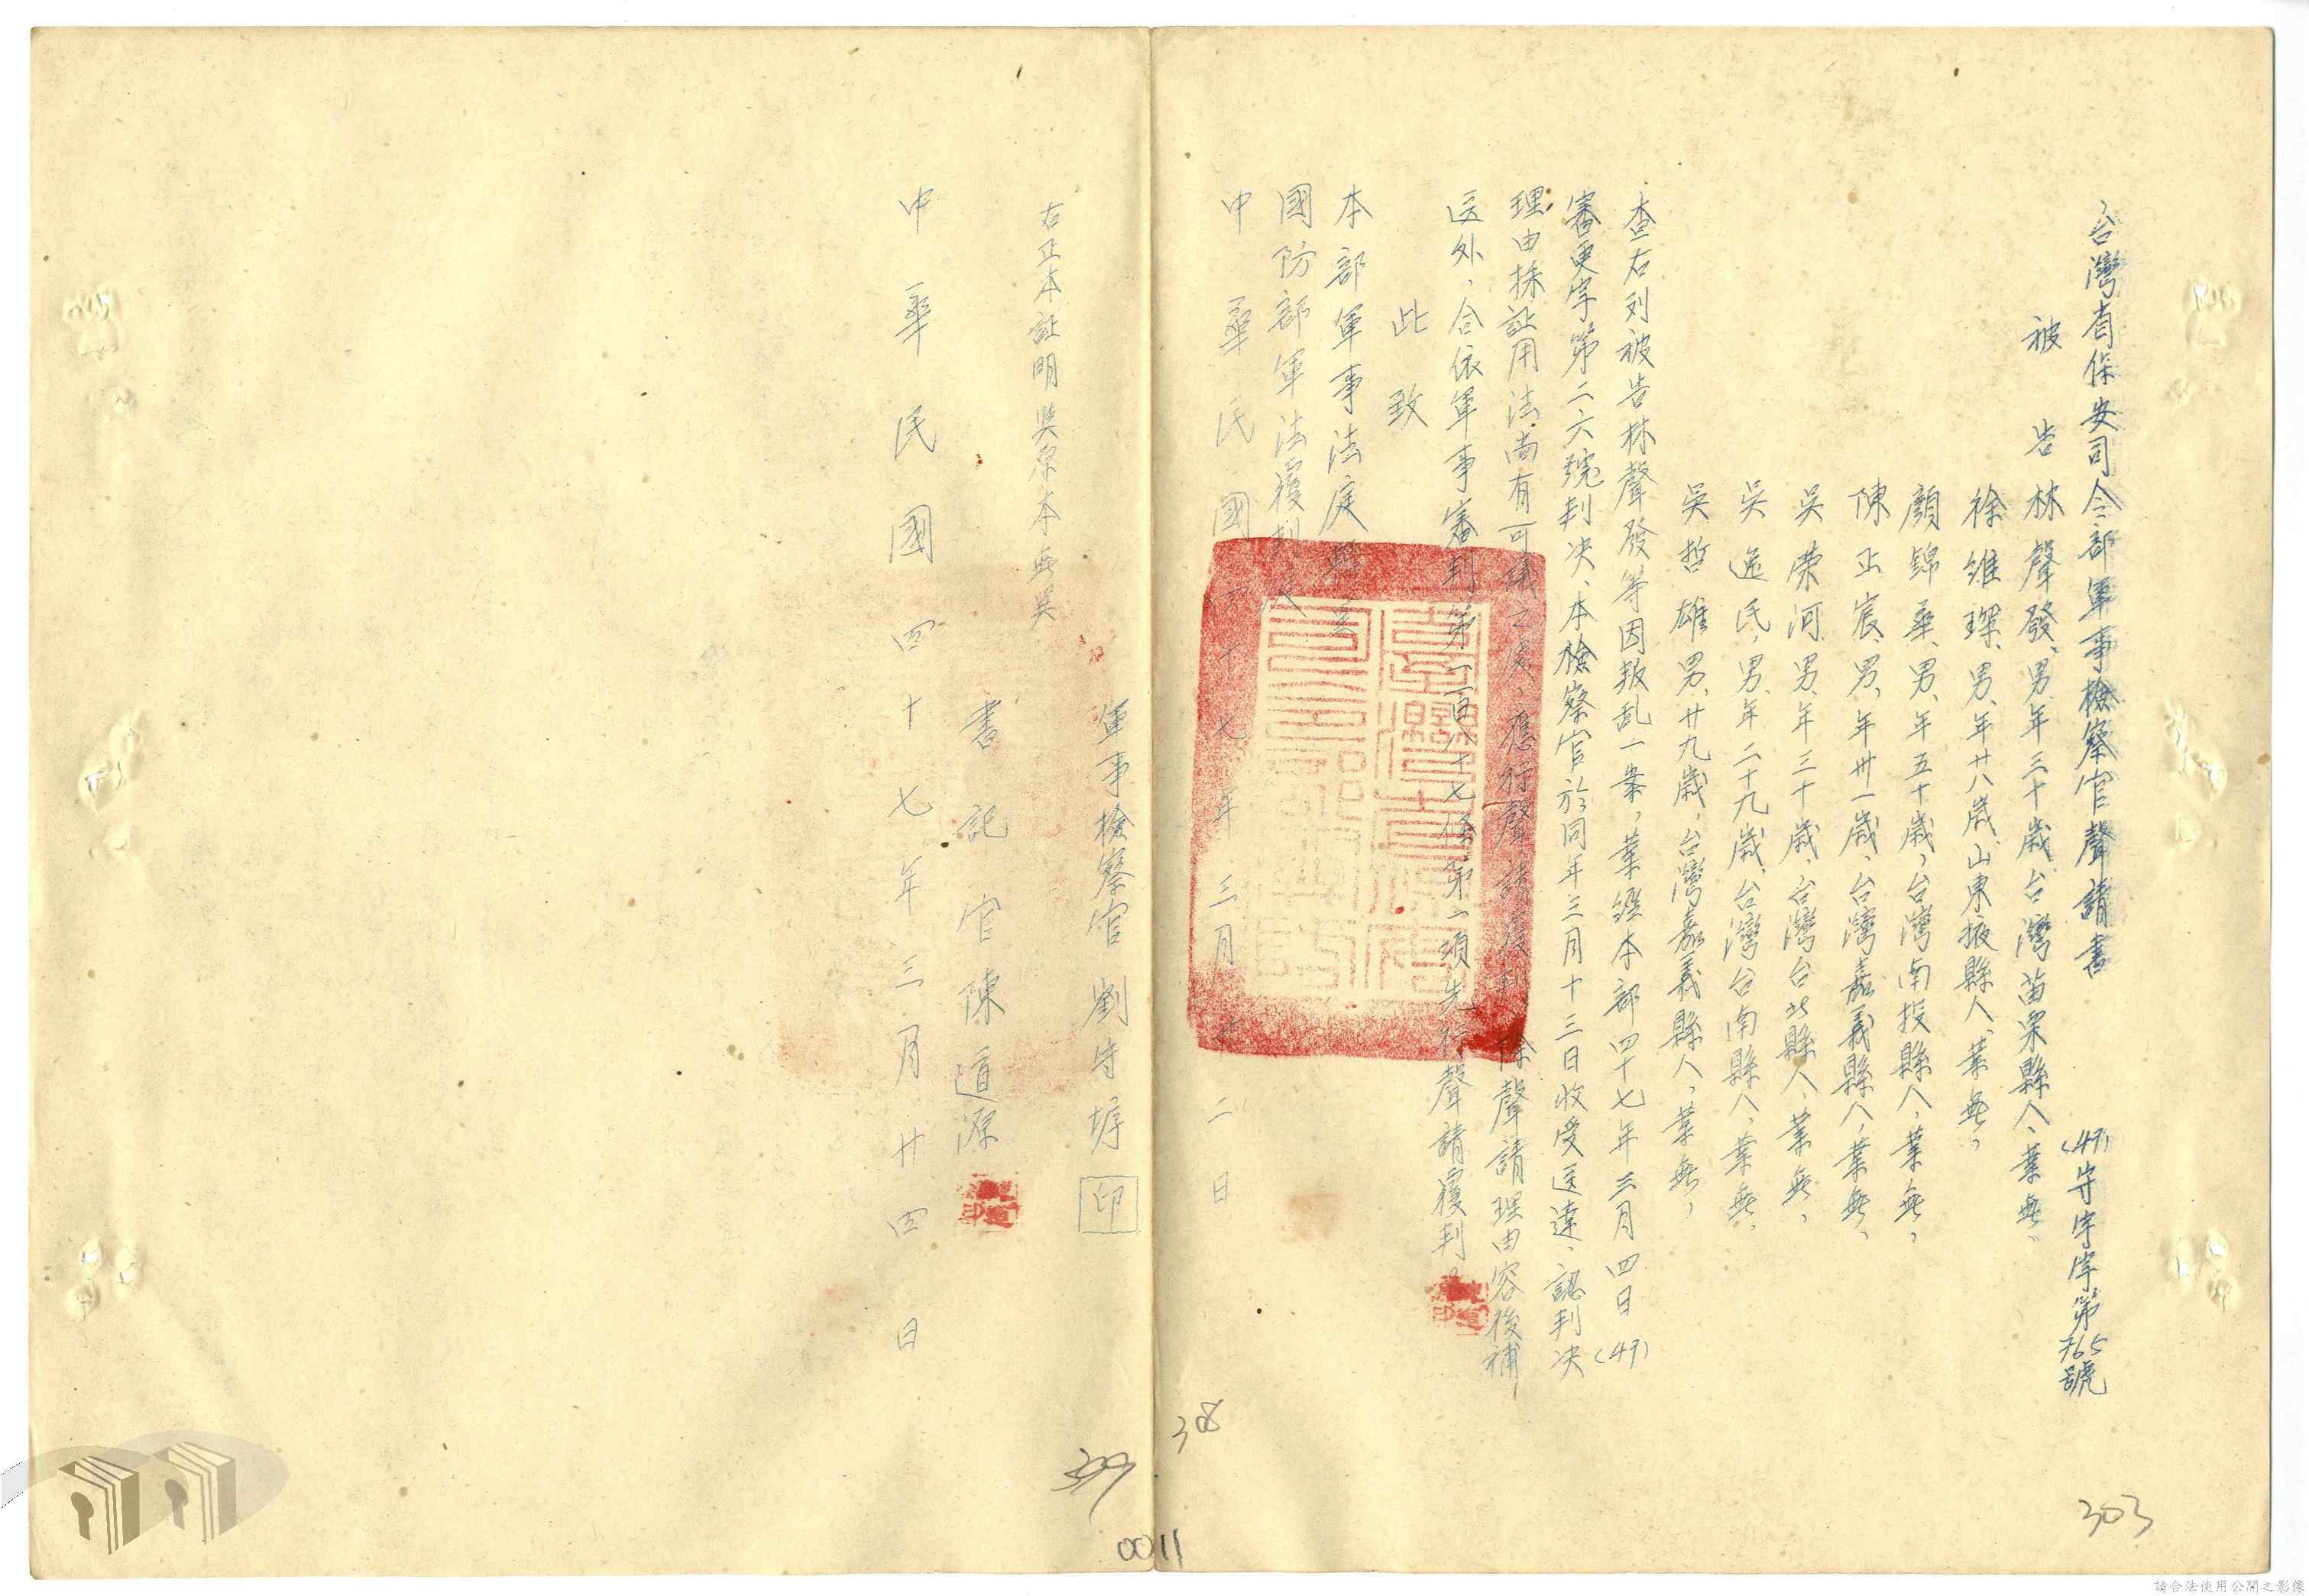 台灣省保安司令部軍事檢察官聲請書 (47)守字字第765號
被告 林聲發、男、年三十歲、台灣苗栗縣人、業無、
徐維琛、男、年廿八歲、山東掖縣人、業無、
顏錦華、男、年五十歲、台灣南投縣人、業無、
陳正宸、男、年卅一歲、台灣嘉義縣人、業無、
吳榮河、男、年三十歲、台灣台北縣人、業無、
吳逸民、男、年二十九歲、台灣台南縣人、業無、
吳哲雄、男、廿九歲、台灣嘉義縣人、業無、
查右列被告林聲發等因叛乱一案，業經本部四十七年三月四日(47)
審更字第二六號判决、本檢察官於同年三月十三日收受送達，認判决
理由採証用法，尚有可議之處，應行聲請覆判，除聲請理由容後補
送外，合依軍事審判第一百八十七條第一項先行聲請覆判。
此致
本部軍事法庭轉呈
國防部軍法覆判庭
中華民國四十七年三月 二日
軍事檢察官 劉守 印
右正本証明與原本無異
書記官 陳道源
中華民國四十七年三月廿四日
303
308
309
0011
請合法使用公開之影像